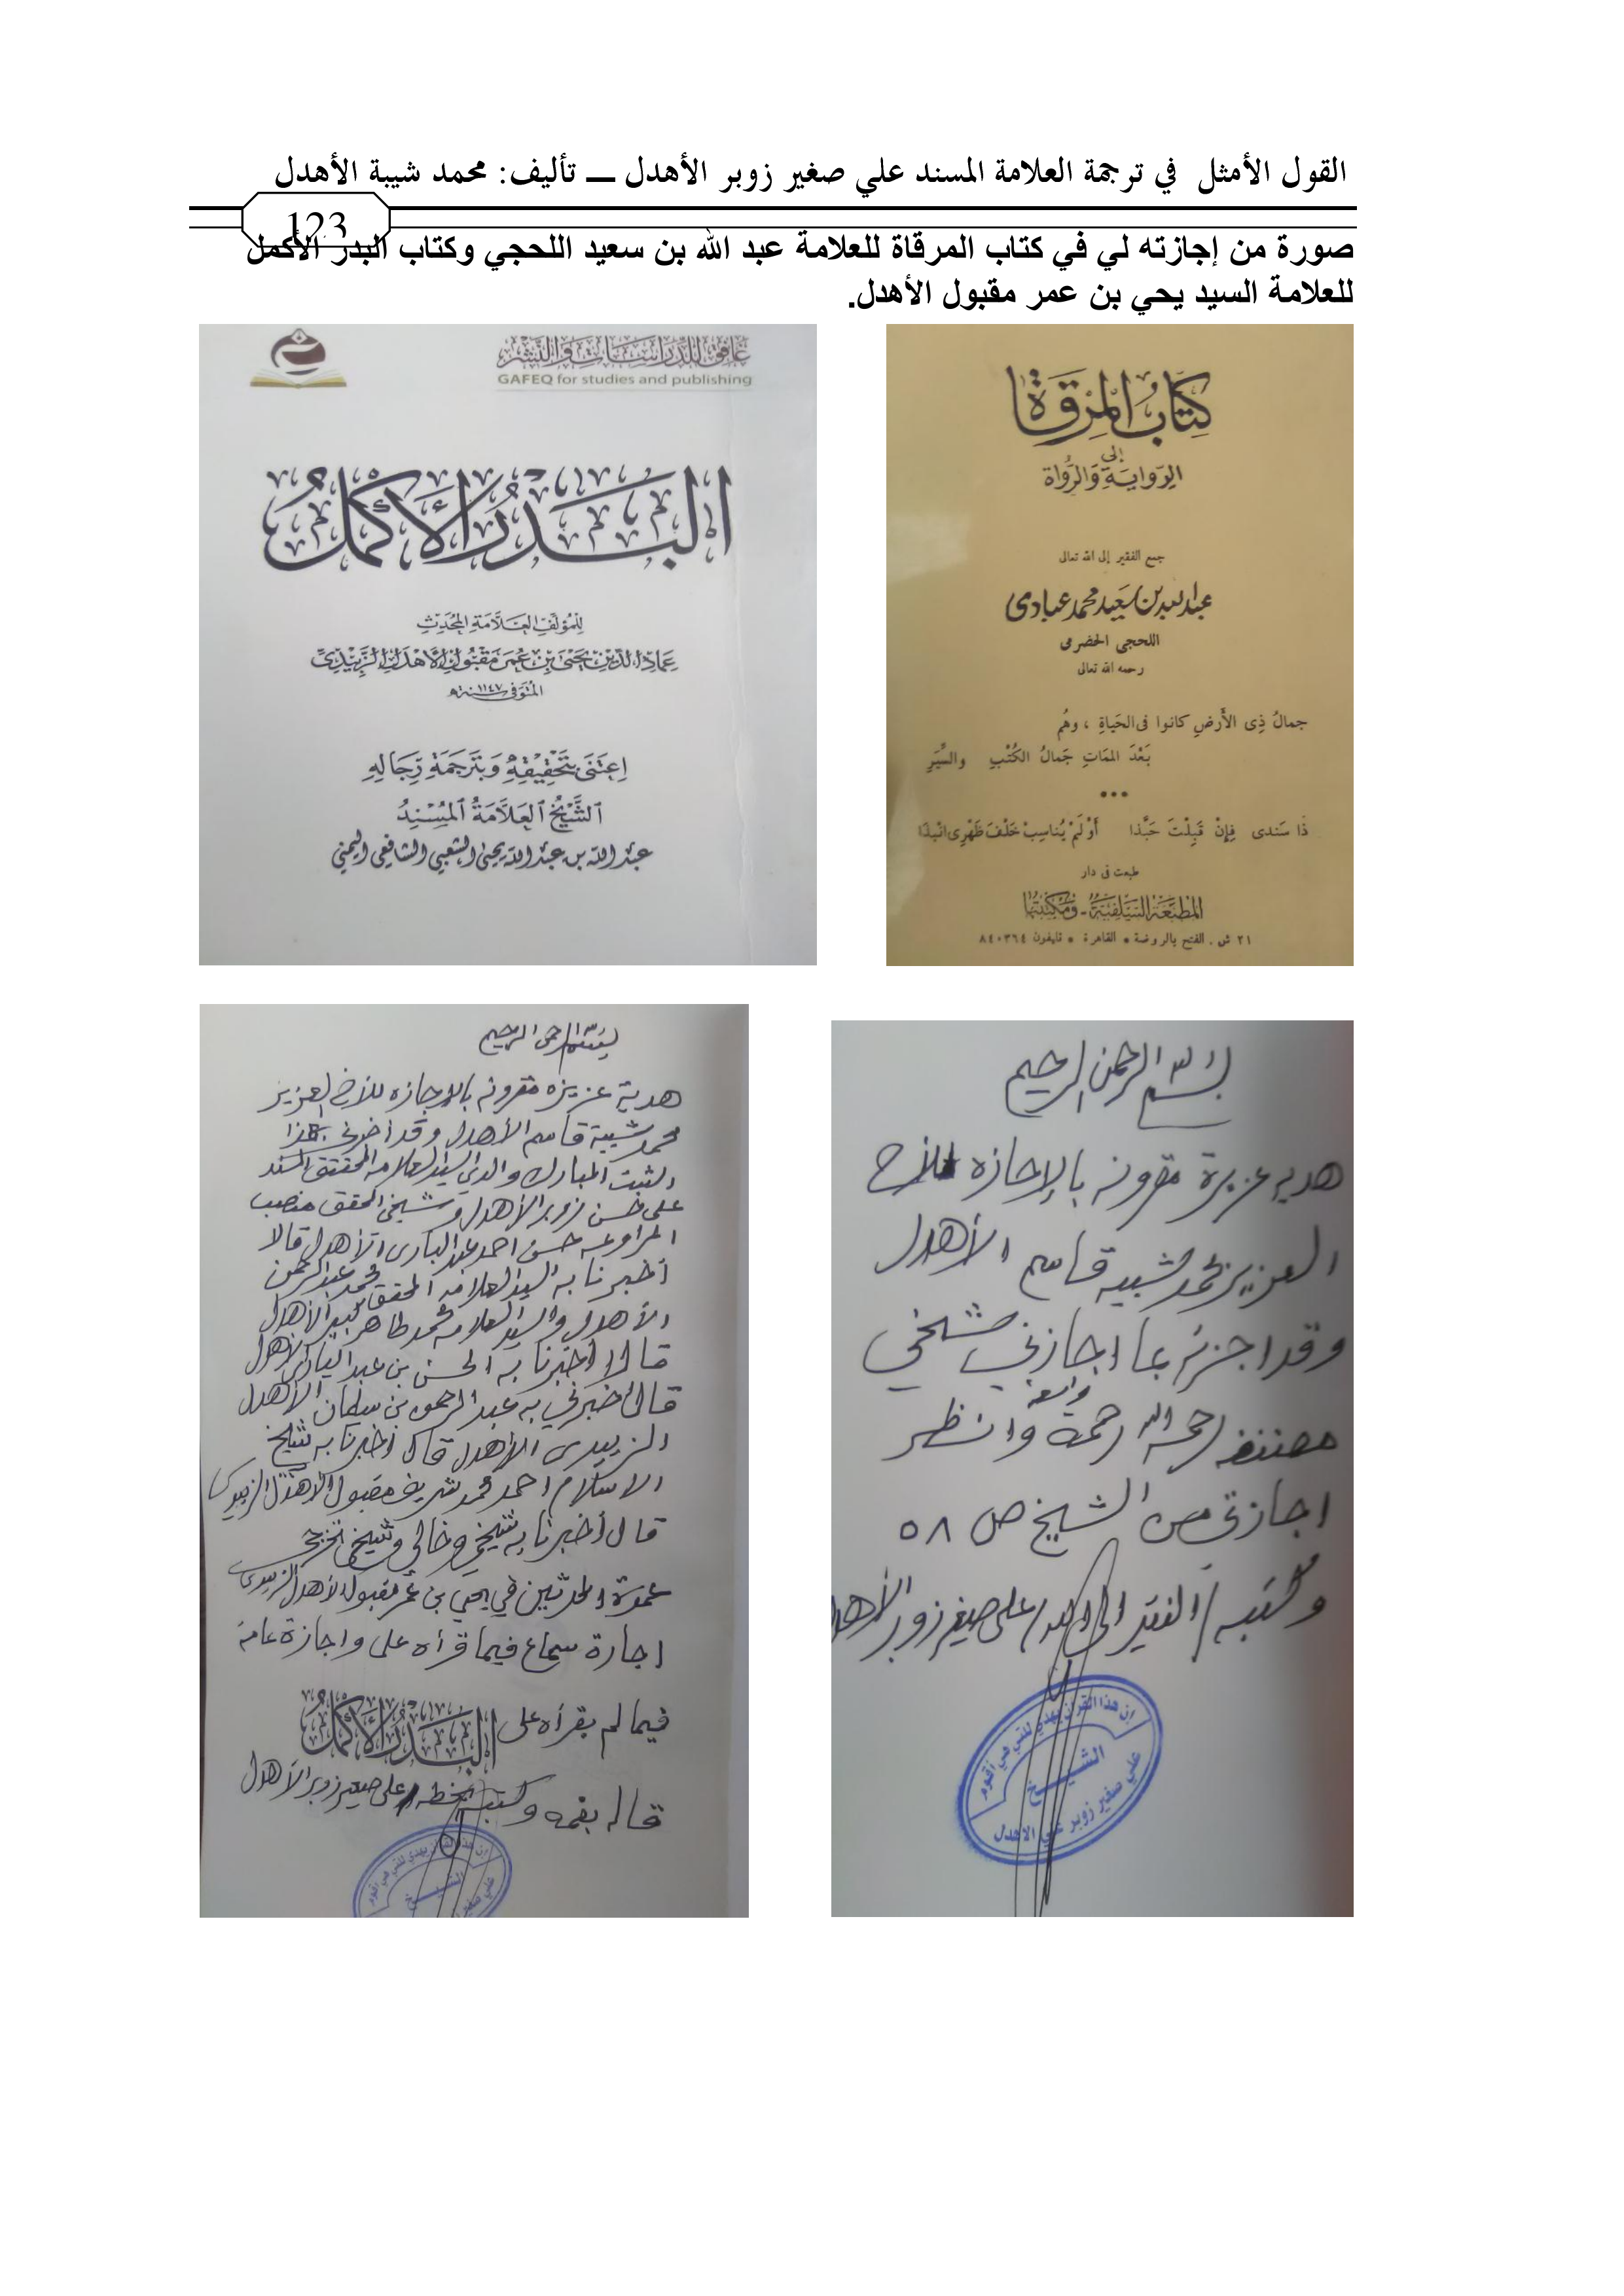 القول الأمثل في ترجمة العلامة المسند علي صغير زوبر الأهدل ــ تأليف: محمد شيبة الأهدل
123
صورة من إجازته لي في كتاب المرقاة للعلامة عبد الله بن سعيد اللحجي وكتاب البدر الأكمل
للعلامة السيد يحي بن عمر مقبول الأهدل.
كتاب المرقاة
إلى
الرواية والرواة
جمع الفقير إلى الله تعالى
عبد الله بن سعيد محمد عبادى
اللحجى الحضرمى
رحمه الله تعالى
جمالُ ذِى الأرضِ كانوا فى الحَياةِ ، وهُم
بَعْدَ المَماتِ جَمالُ الكُتْبِ والسِّيَرِ
ذا سَندى فإنْ قَبِلْتَ حَبَّذا أوْ لَمْ يُناسِبْ خَلْفَ ظَهْرِى انْبِذا
طبعت فى دار
المطبعة السلفية - ومكتبتها
٢١ ش . الفتح بالروضة * القاهرة * تليفون ٨٤٠٣٦٤
غافق للدراسات والنشر
GAFEQ for studies and publishing
البدر الأكمل
للمؤلف العلامة المحدث
عماد الدين يحيى بن عمر مقبول الأهدل الزبيدي
المتوفى سنة ١١٤٧ هـ
اعتنى بتحقيقه وبترجمة رجاله
الشيخ العلامة المسند
عبد الله بن عبد الله يحيى الشعبي الشافعي اليمني
بسم الله الرحمن الرحيم
هديه عزيزة مقرونه بالإجازه للأخ
العزيز محمد شيبه قاسم الأهدل
وقد اجزته بما اجازني شيخي
مصنفه رحمه الله رحمة واسعة وانظر
اجازتي من الشيخ ص ٥٨
وكتبه / الفقير الى الله / علي صغير زوبر الأهدل
إن هذا القرآن يهدي للتي هي أقوم
الشيخ
علي صغير زوبر علي الاهدل
بسم الله الرحمن الرحيم
هدية عزيزه مقرونه بالإجازه للأخ العزيز
محمد شيبة قاسم الأهدل وقد أخبرني بهذا
الثبت المبارك والدي السيد العلامه المحقق المسند
علي حسن زوبر الأهدل وشيخي المحقق منصب
المراوعه حسن احمد عبد الباري الأهدل قالا
أخبرنا به السيد العلامه المحقق محمد عبد الرحمن
الأهدل والسيد العلامه محمد طاهر الأهدل
قالا أخبرنا به الحسن بن عبد الباري الأهدل
قال أخبرني به عبد الرحمن بن سليمان الأهدل
الزبيدي الأهدل قال أخبرنا به شيخ
الاسلام احمد محمد شريف مقبول الأهدل الزبيدي
قال أخبرنا به شيخي وخالي وشيخ
عمدة المحدثين يحيي بن عمر مقبول الأهدل الزبيدي
اجازة سماع فيما قرأه علي واجازة عامة
فيما لم يقرأه على البدر الأكمل
قاله بفمه وكتبه بخطه / علي صغير زوبر الأهدل
إن هذا القرآن يهدي للتي هي أقوم
الشيخ
علي صغير